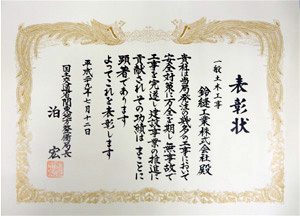 表彰状
一般土木工事
鈴縫工業株式会社 殿
貴社は当局発注の頭書の工事において
安全対策に万全を期し無事故で
工事を完遂し建設事業の推進に
貢献されその功績はまことに
顕著であります
よってこれを表彰します
平成 九年七月十二日
国土交通省関東地方整備局長
泊 宏